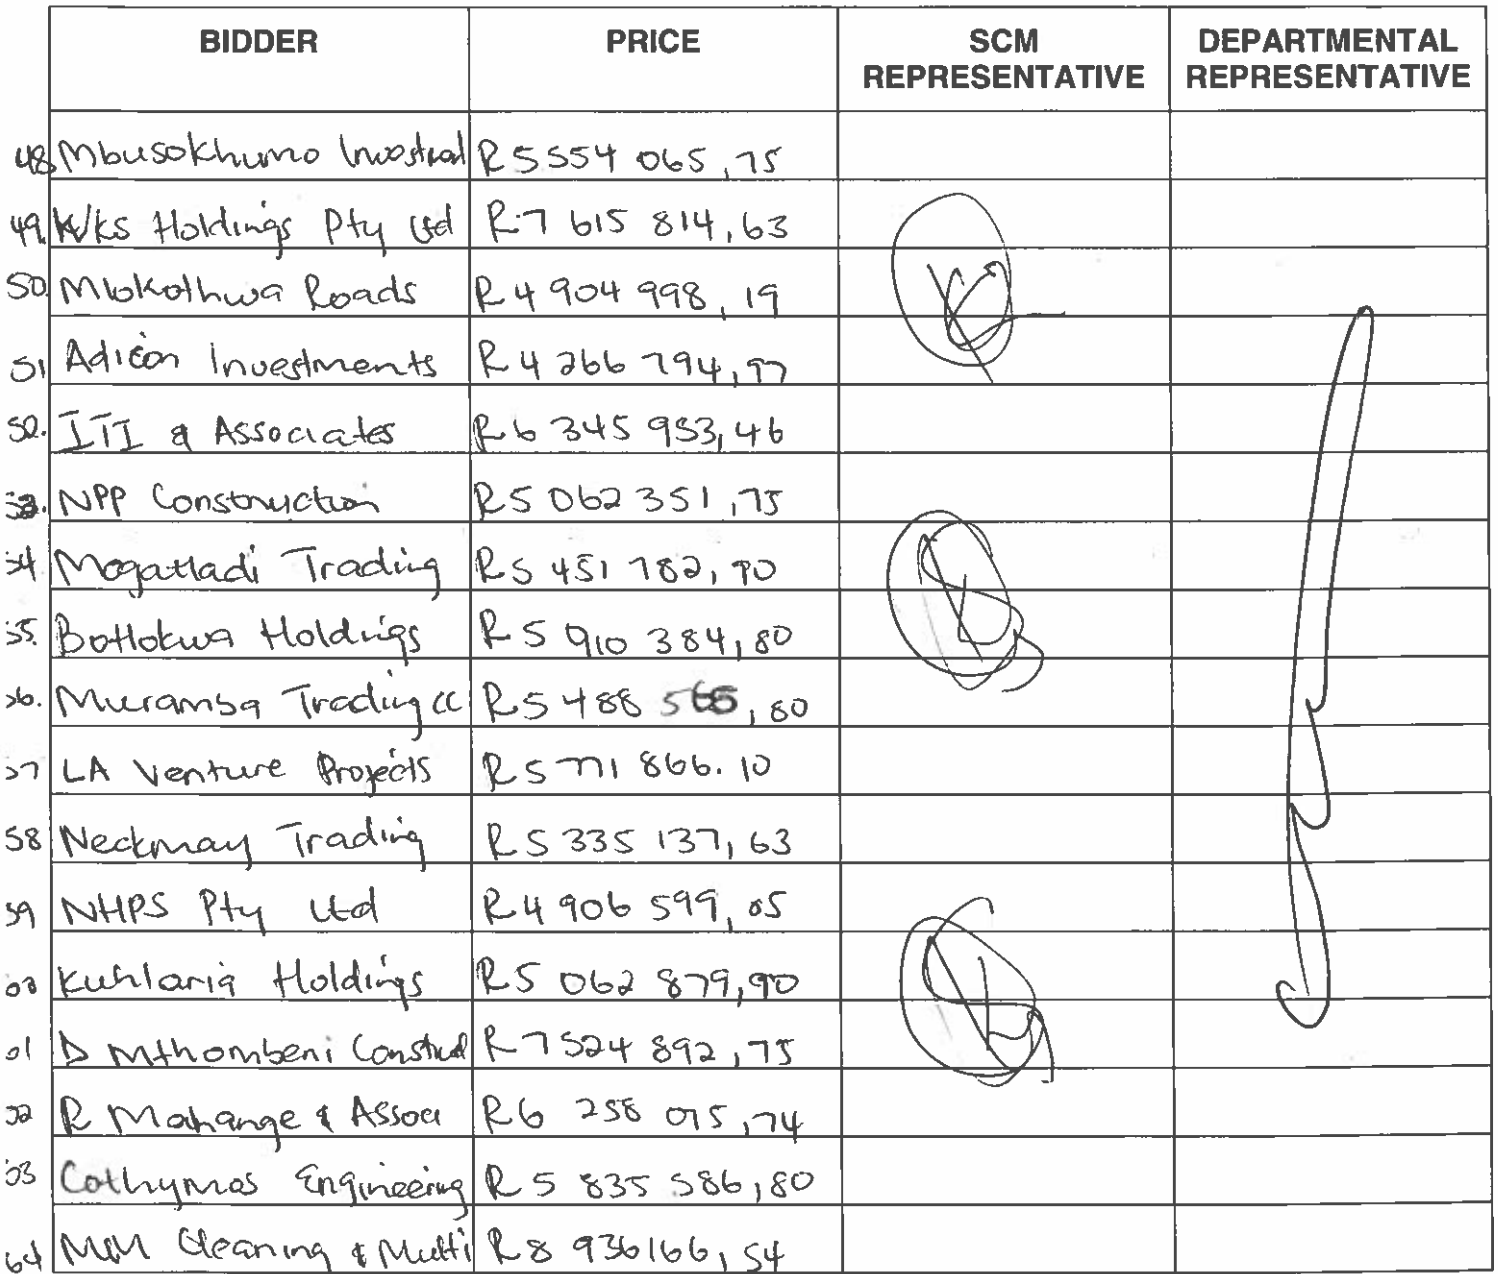 BIDDER PRICE SCM REPRESENTATIVE DEPARTMENTAL REPRESENTATIVE
48 Mbusokhumo R5 554 065,75
49. K/Ks Holdings Pty Ltd R7 615 814,63
50. Mbokothwa Roads R4 904 998,19
51 Adicon Investments R4 266 794,97
52. ITI & Associates R6 345 953,46
53. NPP Construction R5 062 351,75
54. Mogatladi Trading R5 451 782,90
55. Botlokwa Holdings R5 910 384,80
56. Muramba Trading cc R5 488 ,80
57 LA Venture Projects R5 771 866.10
58 Neckmay Trading R5 335 137,63
59 NHPS Pty Ltd R4 906 599,05
Kuhlaria Holdings R5 062 879,90
D Mthombeni R7 524 892,75
R Mahange & Associ R6 258 075,74
Cathymas Engineering R5 835 586,80
64 MM Cleaning & Multi R8 936166,54